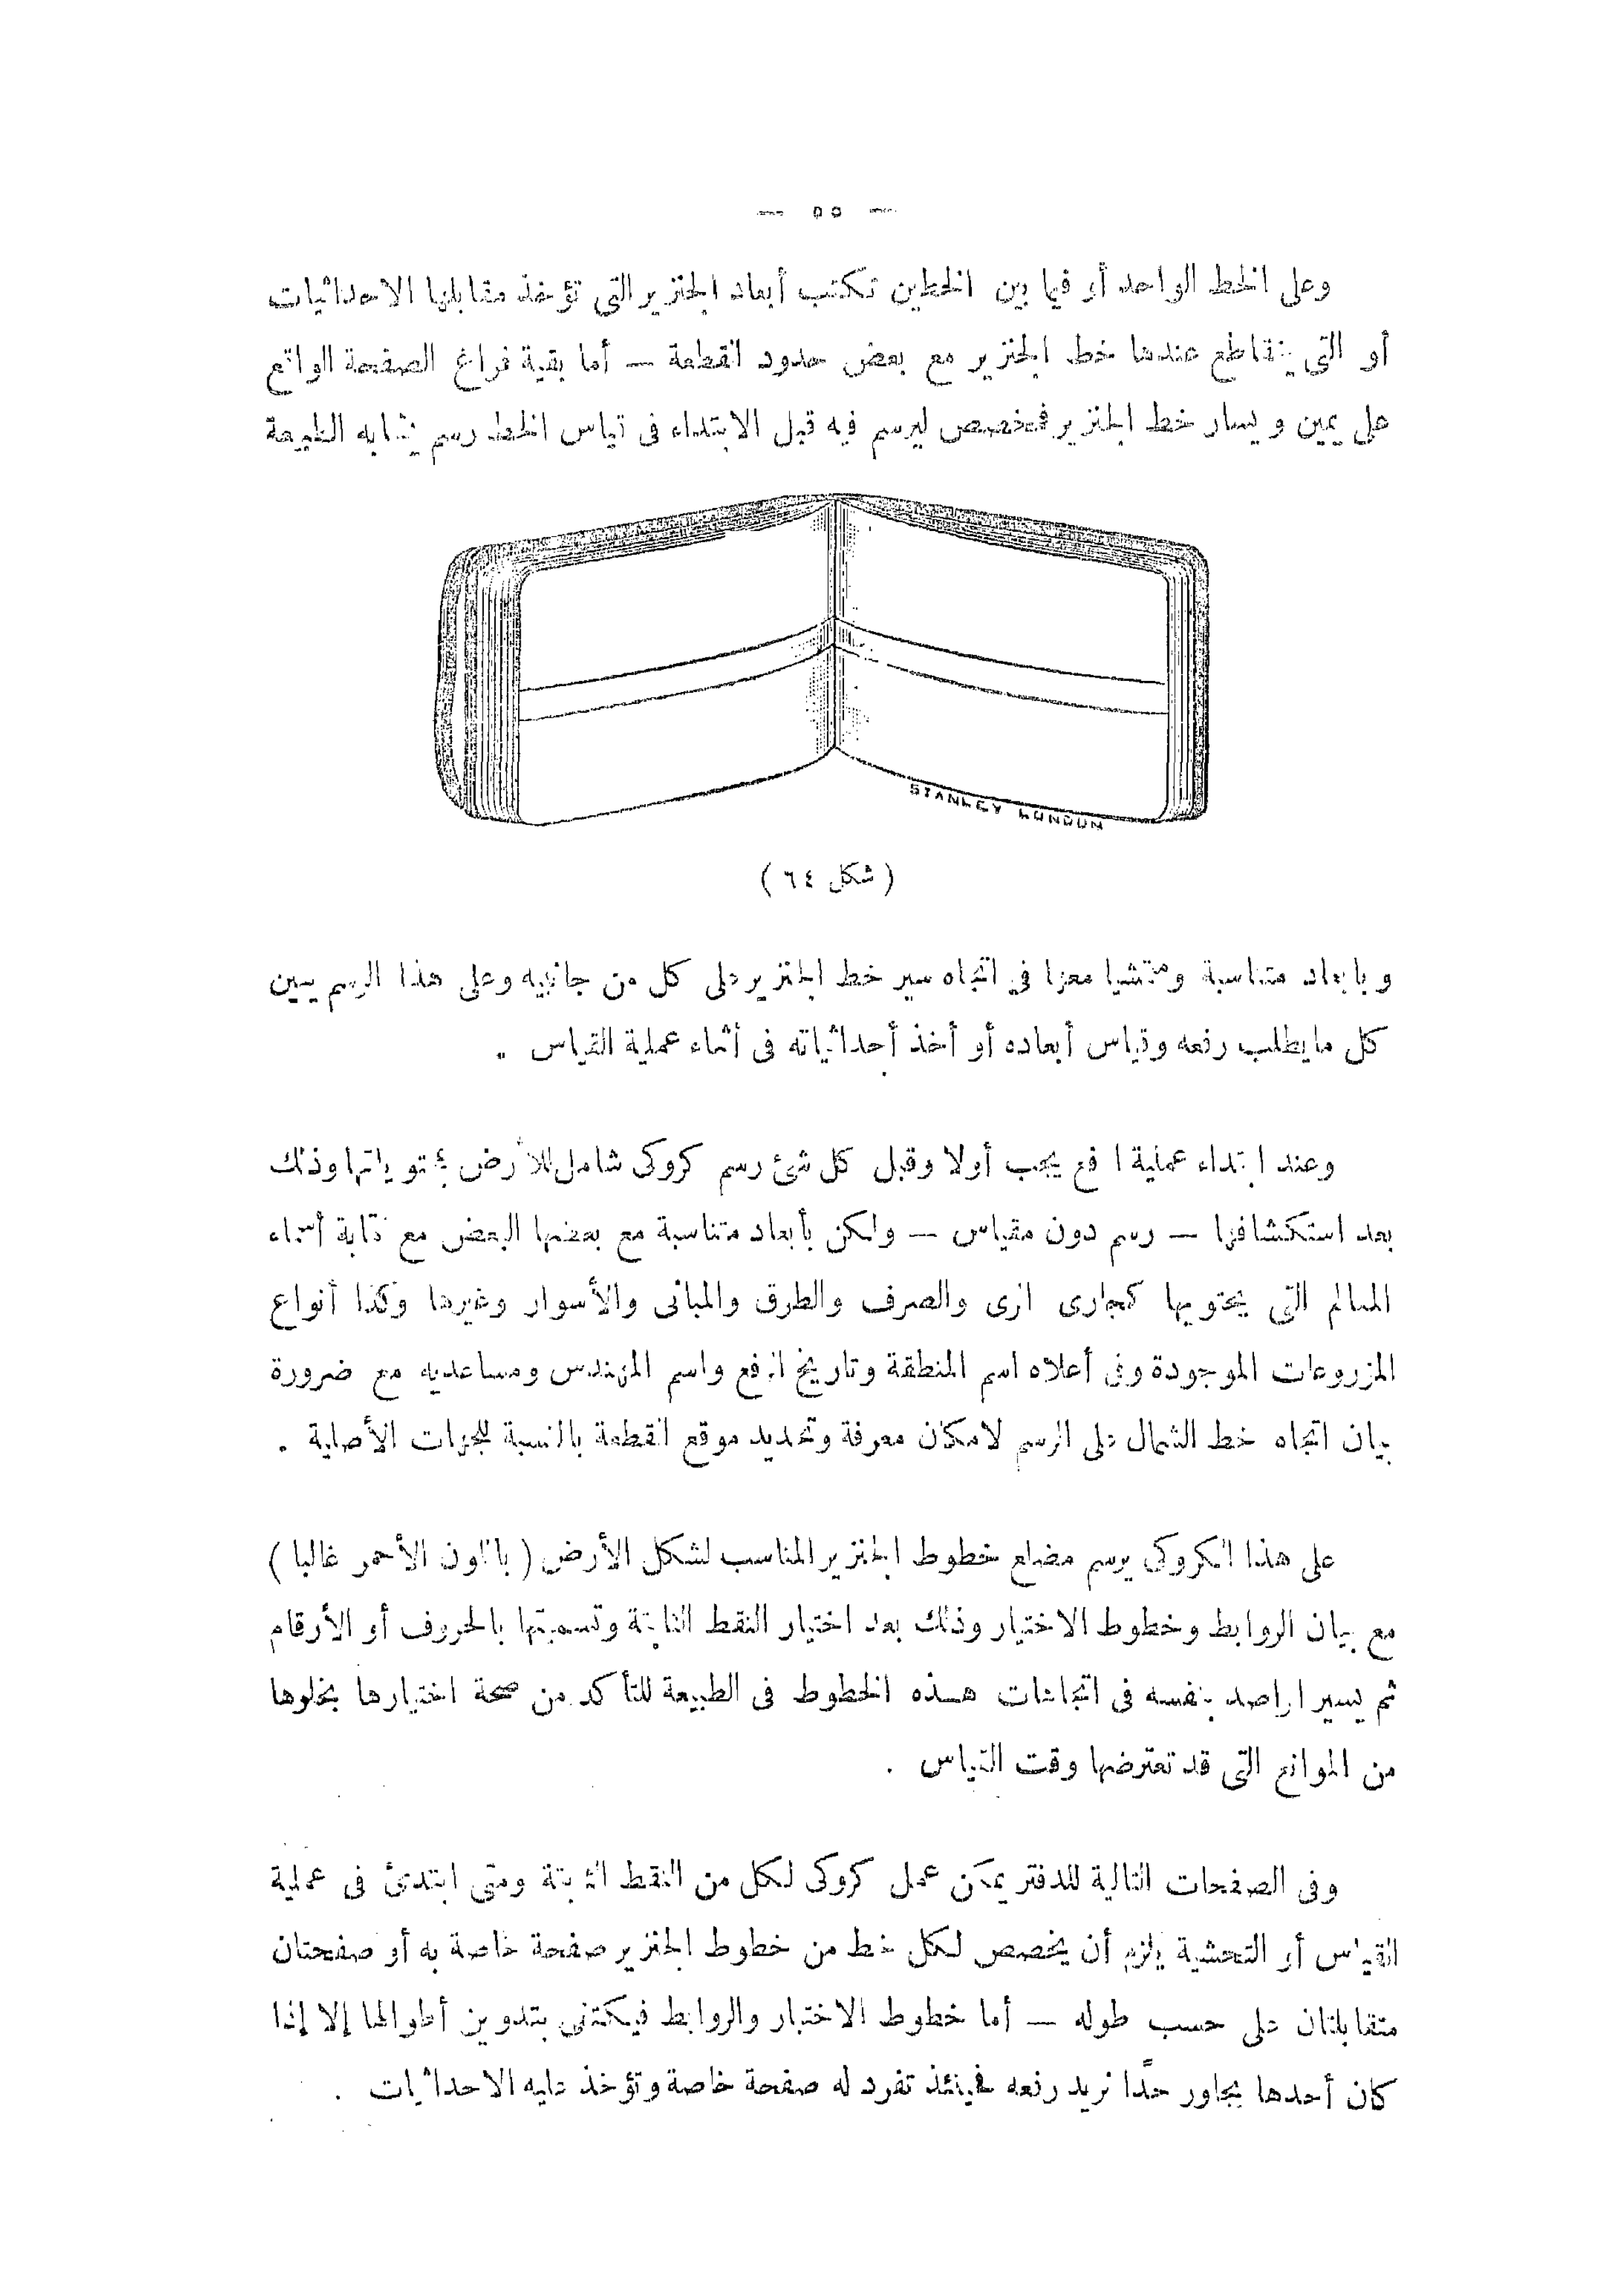 — ٥٥ —
وعلى الخط الواحد أو فيما بين الخطين تكتب أبعاد الجنزير التى تؤخذ مقابلها الاحداثيات
أو التى يتقاطع عندها خط الجنزير مع بعض حدود القطعة — أما بقية فراغ الصفحة الواقع
على يمين ويسار خط الجنزير فمخصص ليرسم فيه قبل الابتداء فى قياس الخط رسم يشابه الطبيعة
STANLEY LONDON
( شكل ٦٤ )
وبابعاد متناسبة ومتمشيا معها فى اتجاه سير خط الجنزير على كل من جانبيه وعلى هذا الرسم يبين
كل ما يطلب رفعه وقياس أبعاده أو أخذ أحداثياته فى أثناء عملية القياس .
وعند ابتداء عملية الرفع يجب أولا وقبل كل شئ رسم كروكى شامل للأرض بمحتوياتها وذلك
بعد استكشافها — رسم دون مقياس — ولكن بأبعاد متناسبة مع بعضها البعض مع كتابة أسماء
المعالم التى يحتويها كمجارى الرى والصرف والطرق والمبانى والأسوار وغيرها وكذا أنواع
المزروعات الموجودة وفى أعلاه اسم المنطقة وتاريخ الرفع واسم المهندس ومساعديه مع ضرورة
بيان اتجاه خط الشمال على الرسم لامكان معرفة وتحديد موقع القطعة بالنسبة للجهات الأصلية .
على هذا الكروكى يرسم مضلع خطوط الجنزير المناسب لشكل الأرض ( باللون الأحمر غالبا )
مع بيان الروابط وخطوط الاختيار وذلك بعد اختيار النقط الثابتة وتسميتها بالحروف أو الأرقام
ثم يسير الراصد بنفسه فى اتجاهات هـذه الخطوط فى الطبيعة للتأكد من صحة اختيارها بخلوها
من الموانع التى قد تعترضها وقت القياس .
وفى الصفحات التالية للدفتر يمكن عمل كروكى لكل من النقط الثابتة ومتى ابتدئ فى عملية
القياس أو التحشية يلزم أن يخصص لكل خط من خطوط الجنزير صفحة خاصة به أو صفحتان
متقابلتان على حسب طوله — أما خطوط الاختبار والروابط فيكتفى بتدوين أطوالها إلا إذا
كان أحدها يجاور حدًا نريد رفعه فحينئذ تفرد له صفحة خاصة وتؤخذ عليه الاحداثيات .